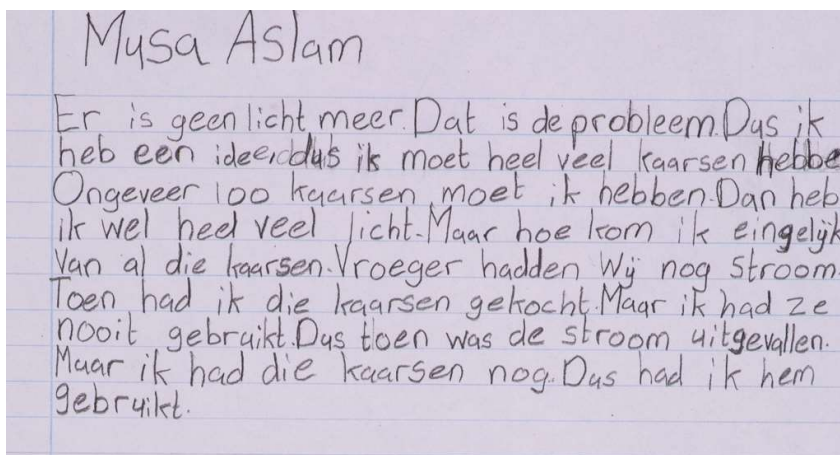 Musa Aslam
Er is geen licht meer. Dat is de probleem. Dus ik
heb een idee, dus ik moet heel veel kaarsen hebbe
Ongeveer 100 kaarsen moet ik hebben. Dan heb
ik wel heel veel licht. Maar hoe kom ik eingelijk
Van al die kaarsen. Vroeger hadden Wij nog stroom.
Toen had ik die kaarsen gekocht. Maar ik had ze
nooit gebruikt. Dus toen was de stroom uitgevallen.
Maar ik had die kaarsen nog. Dus had ik hem
gebruikt.